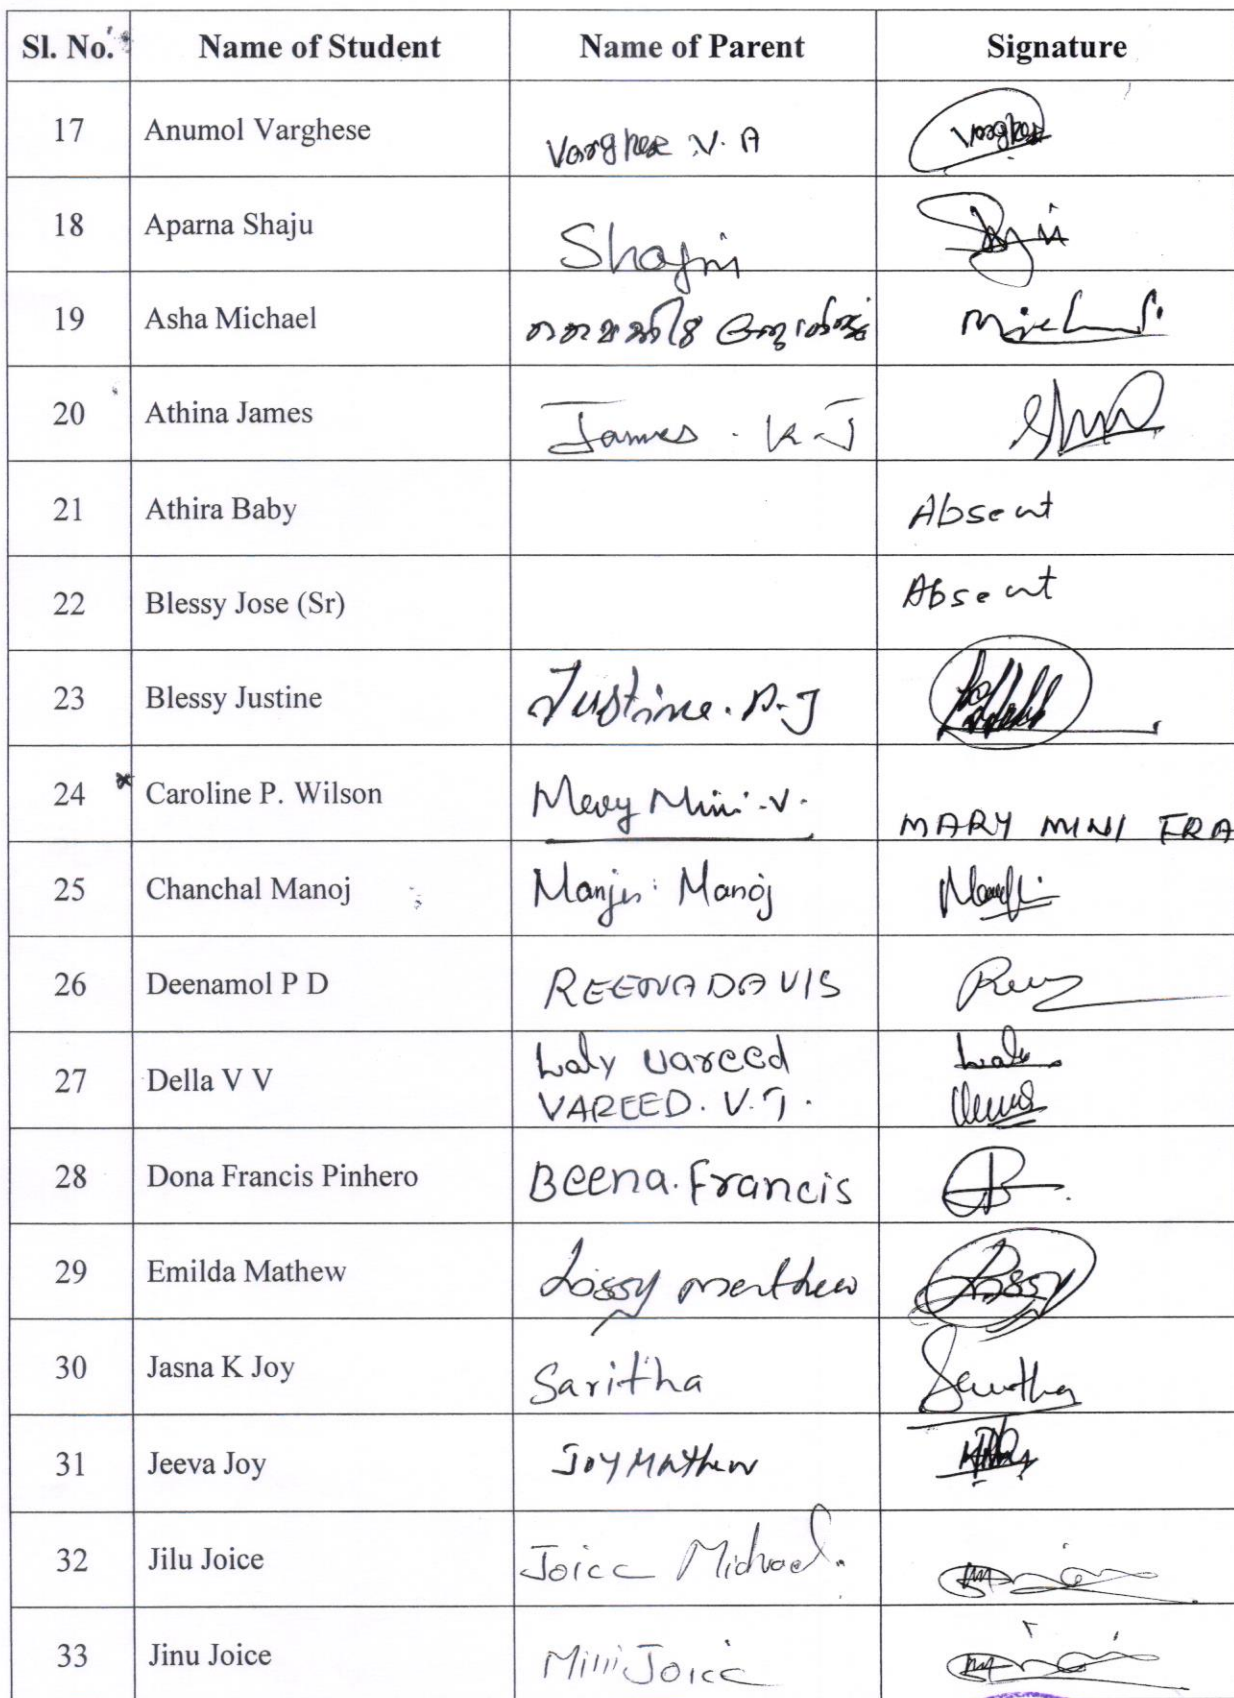 Sl. No. Name of Student Name of Parent Signature
17 Anumol Varghese Varghese V. A Varghese
18 Aparna Shaju
19 Asha Michael
20 Athina James James . K J
21 Athira Baby Absent
22 Blessy Jose (Sr) Absent
23 Blessy Justine Justine. P. J
24 Caroline P. Wilson Mary Mini . V. MARY MINI FRA
25 Chanchal Manoj Manju Manoj
26 Deenamol P D REENA DAVIS
27 Della V V Laly Vareed Laly
VAREED. V. J.
28 Dona Francis Pinhero Beena. Francis
29 Emilda Mathew Lissy Mathew Lissy
30 Jasna K Joy Saritha Saritha
31 Jeeva Joy Joy Mathew
32 Jilu Joice Joice Michael.
33 Jinu Joice Milli Joice